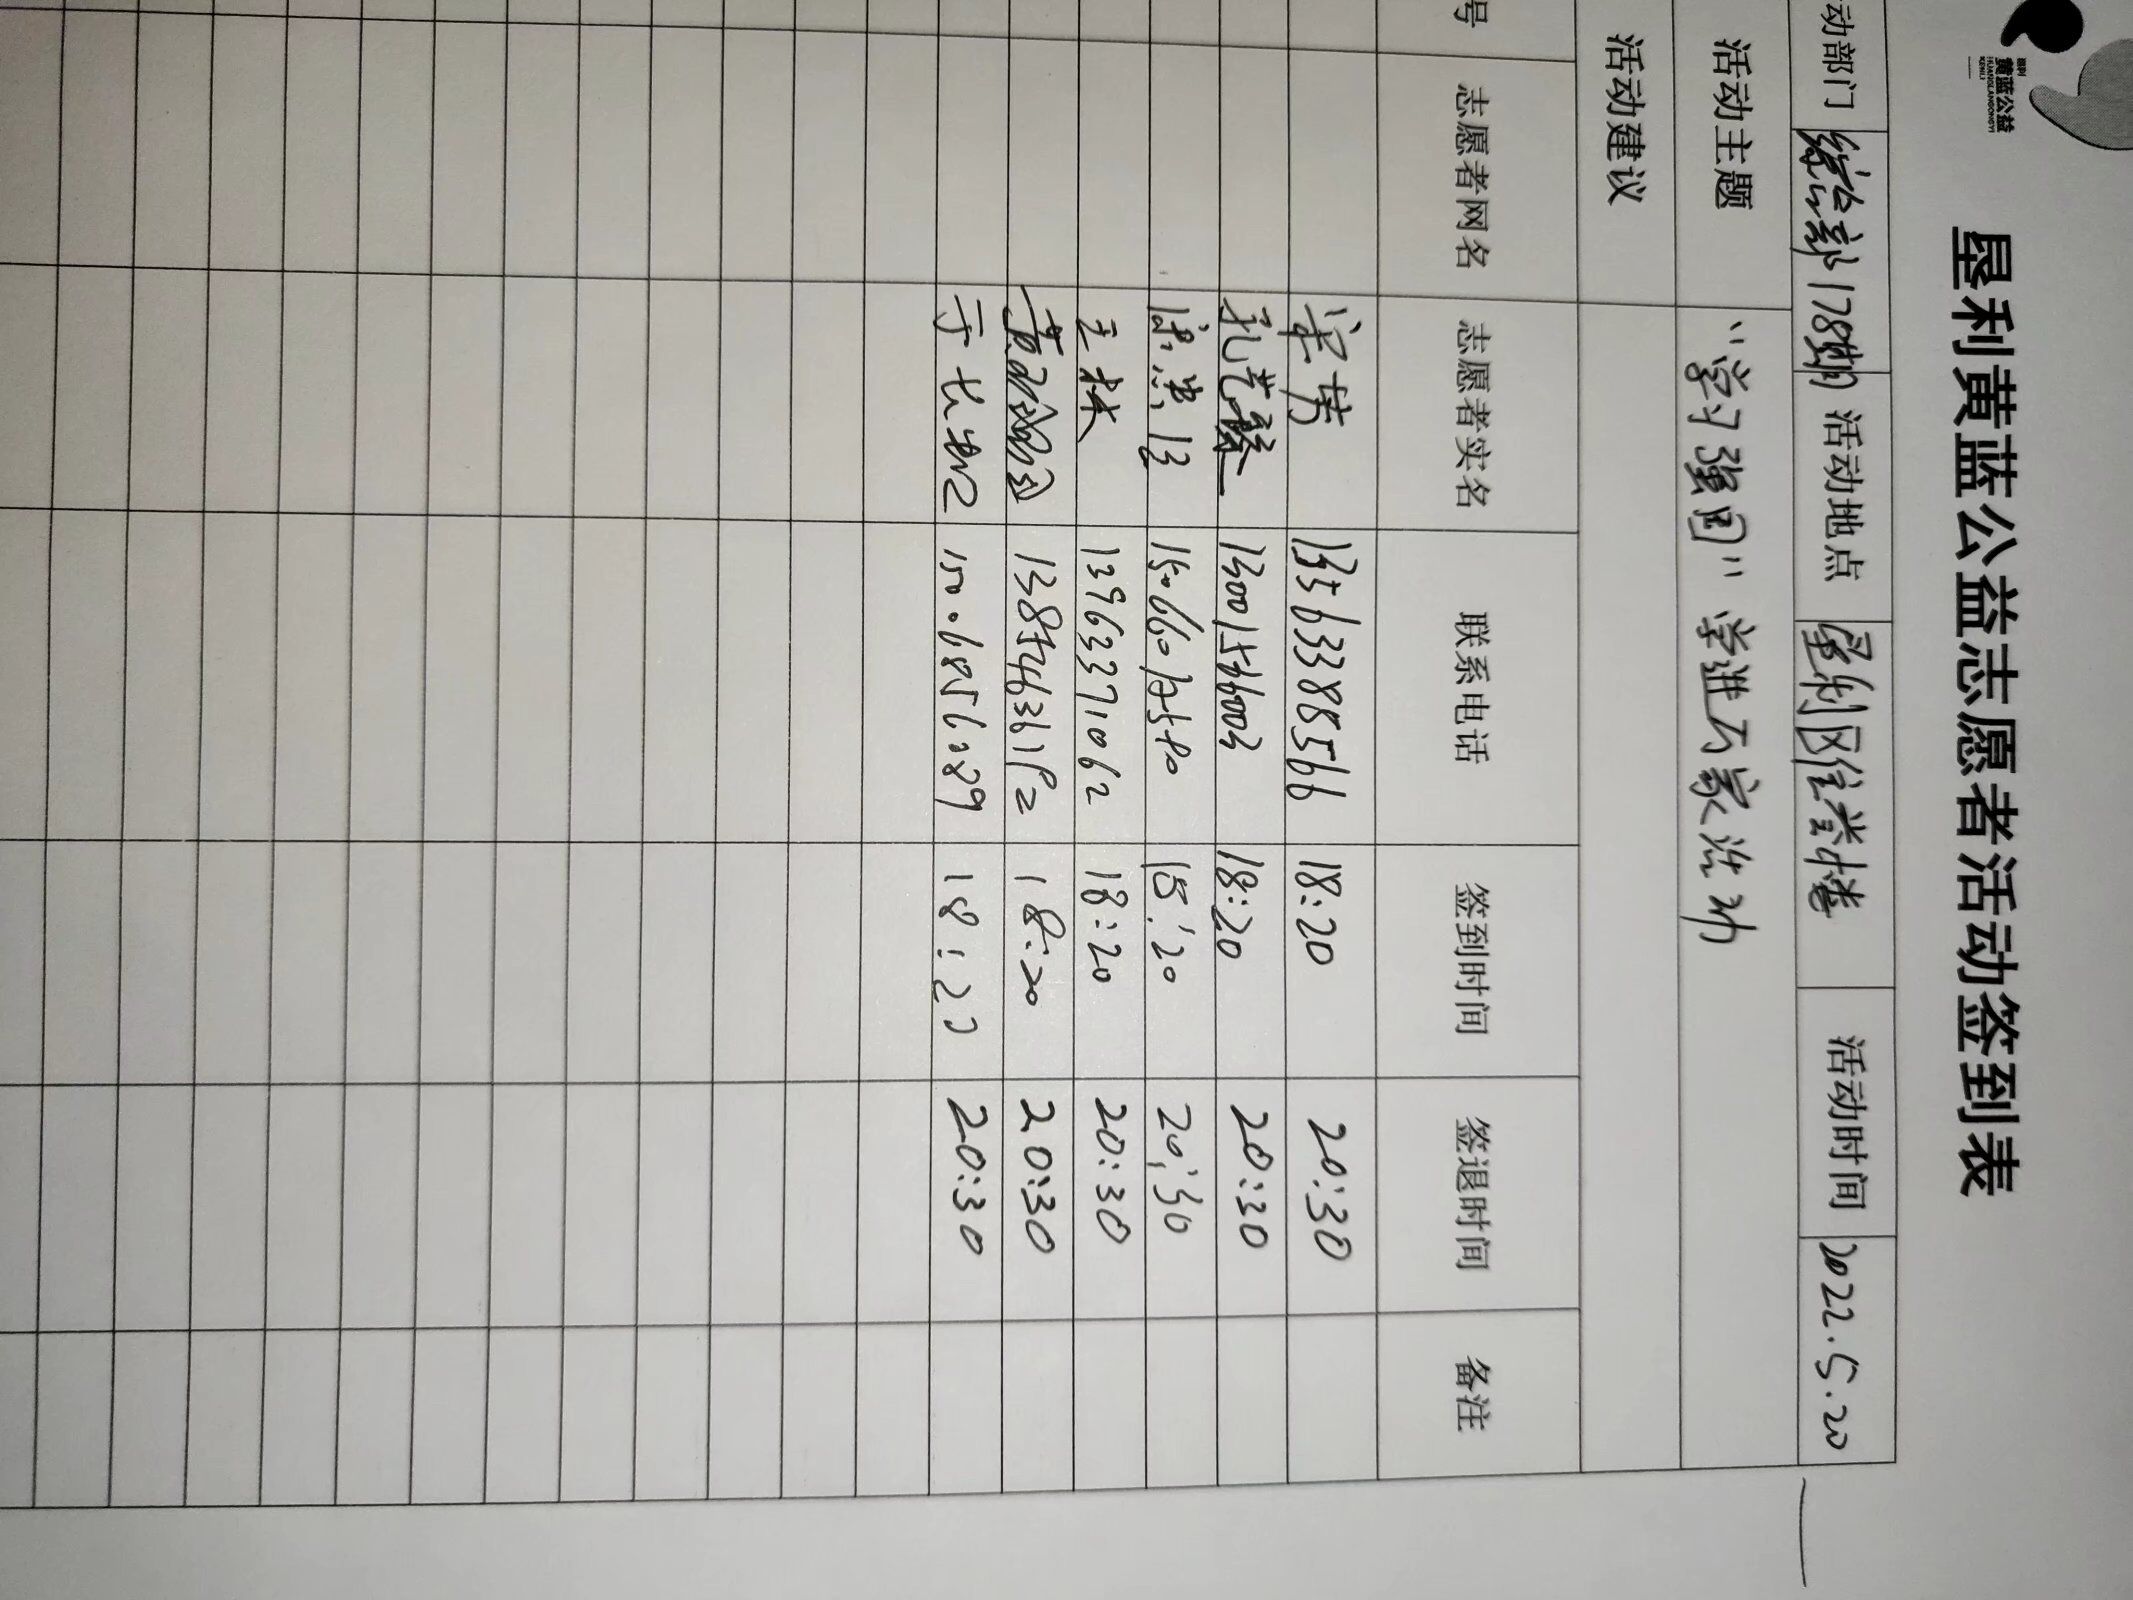 垦利
黄蓝公益
HUANGLANGONGYI
KENLI
垦利黄蓝公益志愿者活动签到表
动部门 综治部178期 活动地点 垦利区信誉楼 活动时间 2022.5.20
活动主题 “学习强国”学进万家活动
活动建议
号 志愿者网名 志愿者实名 联系电话 签到时间 签退时间 备注
13563388566 18:20 20:30
孔艺馨 13001536003 18:20 20:30
18:20 20:30
王林 13963371062 18:20 20:30
18:20 20:30
15006856289 18:20 20:30